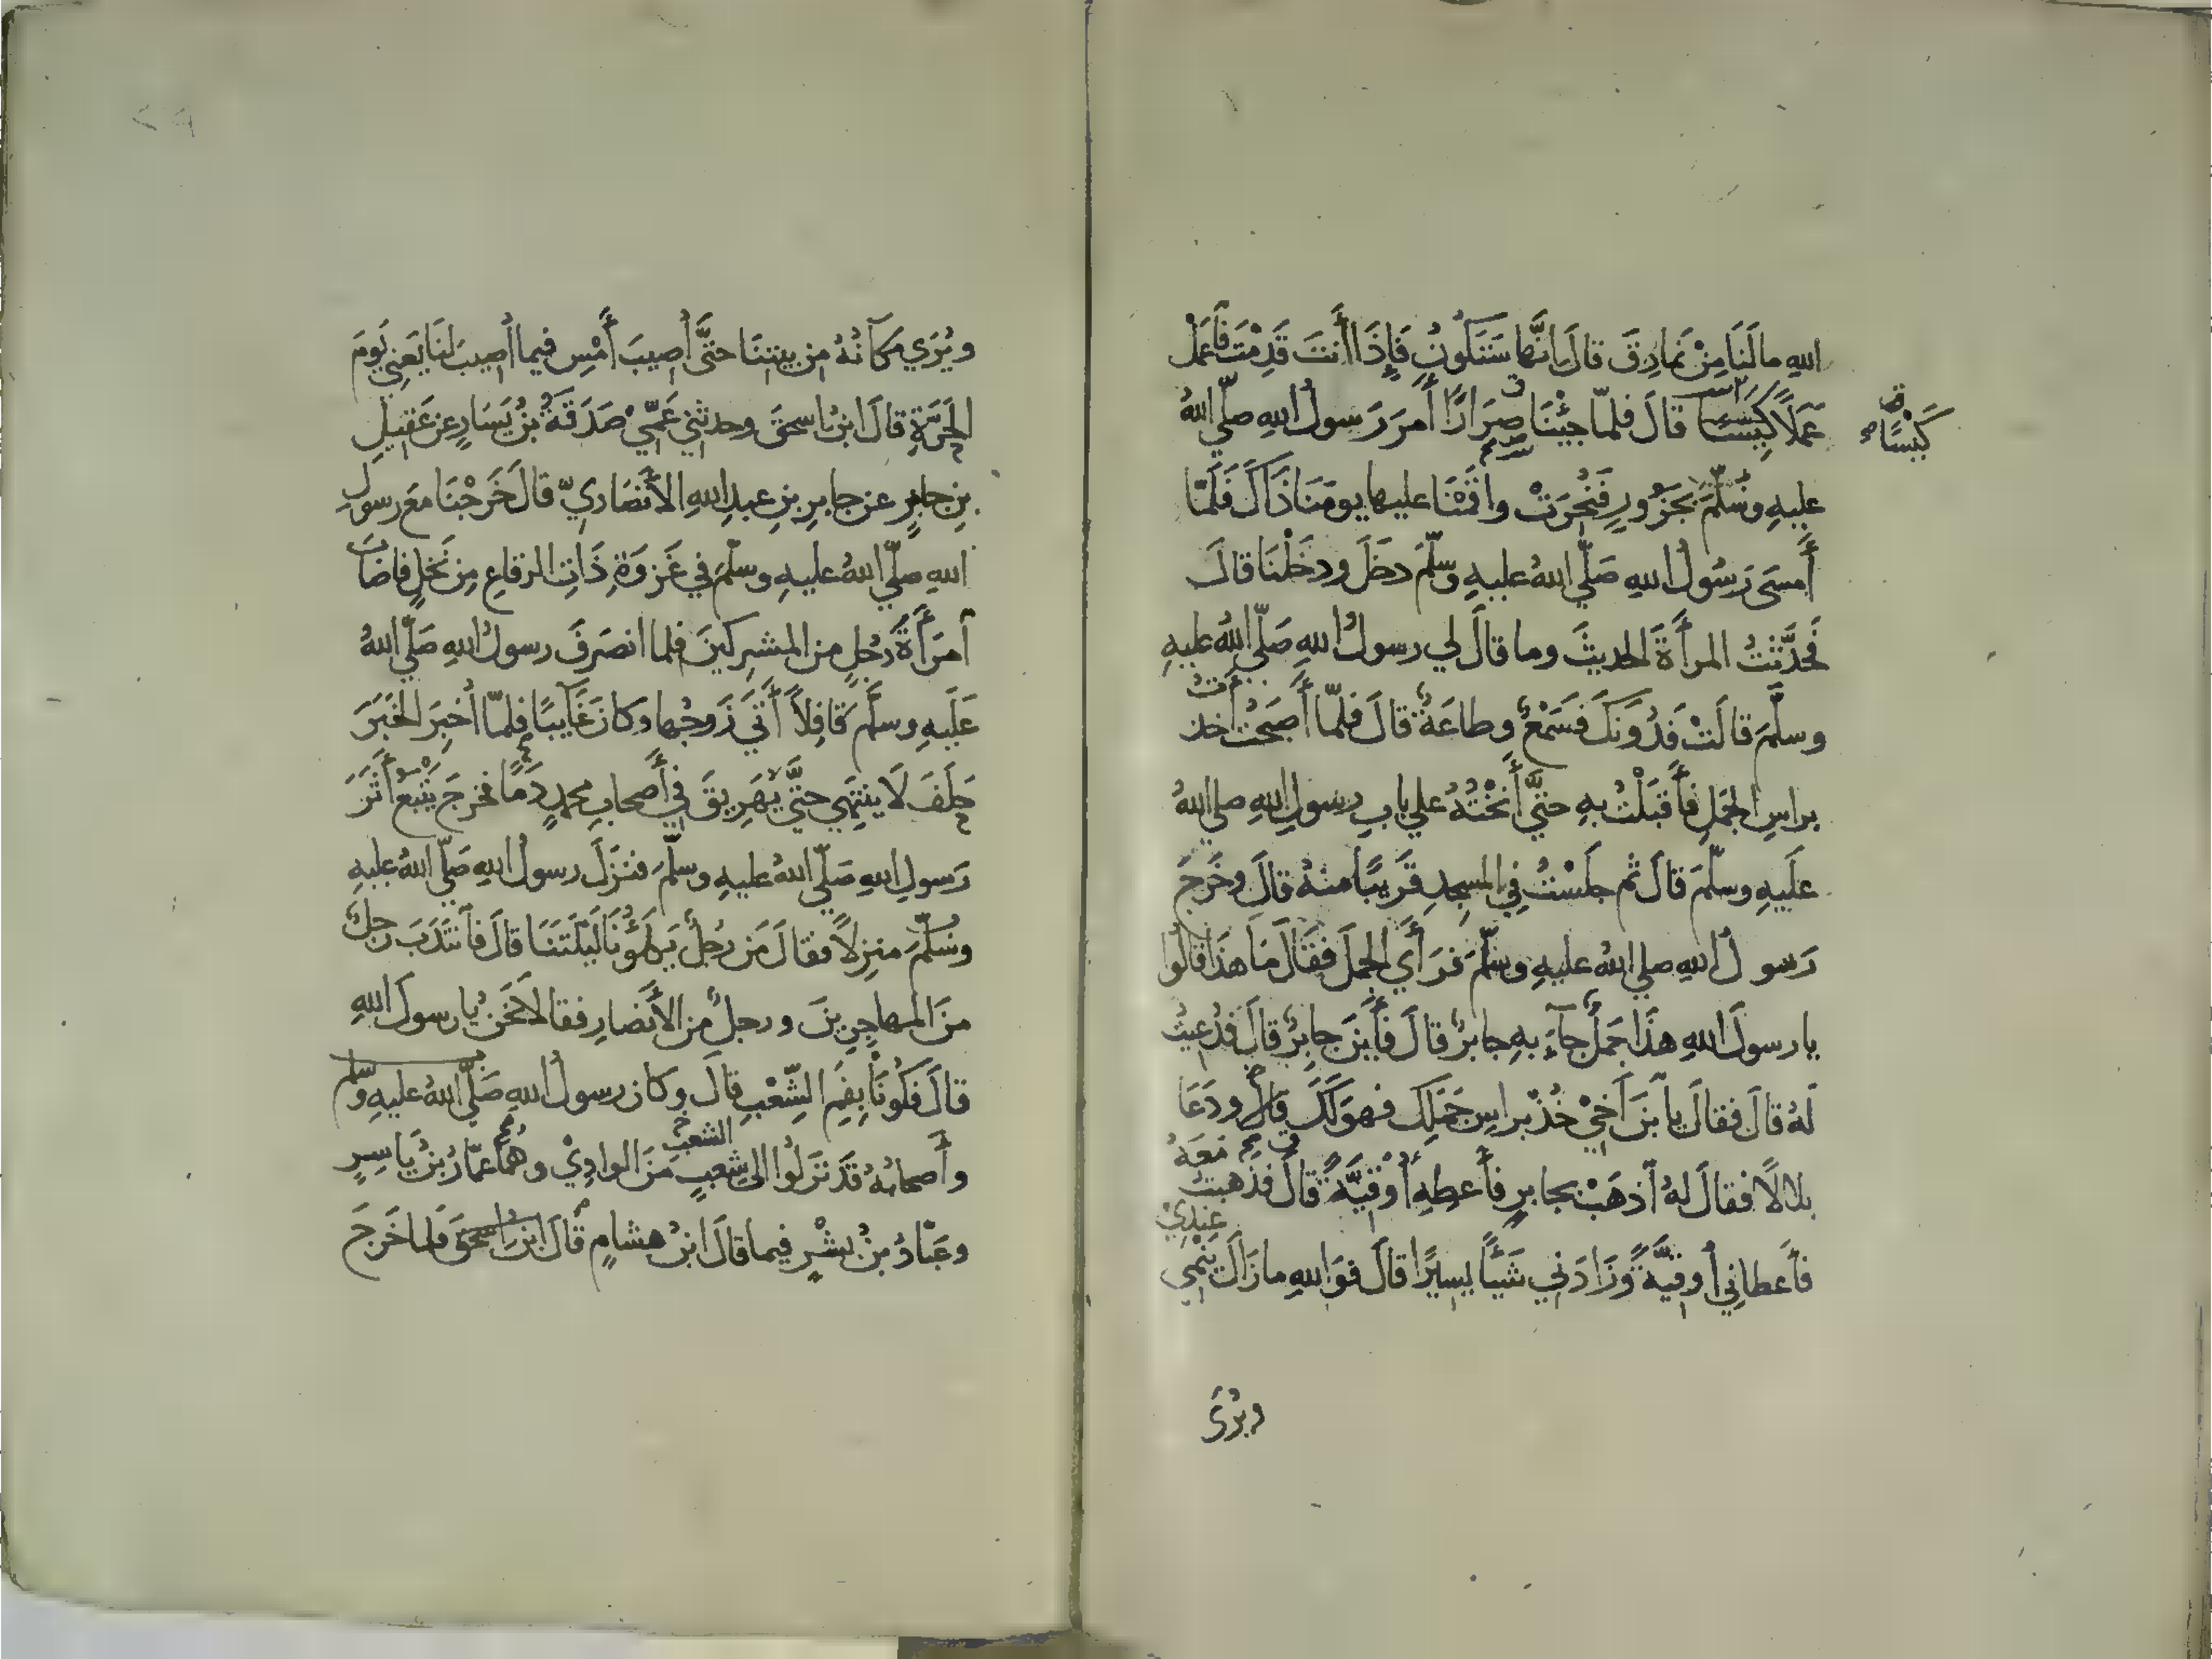 اللهِ مالَنَا مِنْ نَمارِقَ قالَ إنَّها سَتَكُونُ فَإِذَا أَنتَ قَدِمْتَ فَآعْمَلْ
عَمَلًا كَيْسًا قالَ فلمّا جِئْنَا صِرَارًا أَمَرَ رَسولُ اللهِ صلّي اللهُ
كَيْسًا
عليهِ وسَلَّمَ بجَزُورٍ فَنُحِرَتْ واقَمْنَا عليها يومَنَا ذَاكَ فَلَمّا
أَمسَى رَسُولُ اللهِ صَلّي اللهُ عليهِ وسَلّمَ دخَلَ ودخَلْنَا قالَ
فَحَدَّثتُ المرأَةَ الحديثَ وما قالَ لي رسولُ اللهِ صَلّي اللهُ عليهِ
وسلَّمَ قالَتْ فَدُونَكَ فَسَمْعٌ وطاعَةٌ قالَ فلمّا أَصبَحْتُ اخذتُ
براسِ الجَمَلِ فأَقبَلْتُ بهِ حتّي أَنَخْتُهُ علي بابِ رسولِ اللهِ صلي اللهُ
عَلَيهِ وسلّمَ قالَ ثم جلَسْتُ في المسجِدِ قَرِيبًا منهُ قالَ وخَرَجَ
رَسولُ اللهِ صلي اللهُ عليهِ وسَلّمَ فرَأَي الجملَ فقَالَ مَا هذَا قالُوا
يا رسولَ اللهِ هذَا جَمَلٌ جآءَ بهِ جابرٌ قالَ فأَينَ جابِرٌ قالَ فدُعِيتُ
لهُ قالَ فقالَ يا آبنَ أَخِيْ خُذْ براسِ جَمَلِكَ فهوَ لَكَ قالَ ودَعَا
بلالًا فقالَ لهُ آذهَبْ بجابرٍ فأَعطِهِ أُوْقِيَّةً قالَ فذهبتُ مَعَهُ
فأَعطانِي أُوقِيَّةً وزَادَنِي شَيْأً يسِيرًا قالَ فوَاللهِ مازَالَ يَنْمِي عِندِيْ
ويُرَى
ويُرَي مَكانُهُ مِن بيتِنَا حتَّي أُصِيبَ أَمْسِ فيما أُصِيبَ لنَا يَعنِي يَومَ
الحَرّةِ قالَ ابنُ اسحقَ وحدثني عَمِّيْ صَدَقَةُ بنُ يَسَارٍ عن عَقِيلِ
بنِ جابرٍ عن جابرِ بنِ عبدِ اللهِ الأَنصَاريّ قالَ خَرَجْنَا معَ رسولِ
اللهِ صلّي اللهُ عليهِ وسلّمَ في غَزوَةِ ذَاتِ الرقاعِ مِن نَخْلٍ فاصَابَ
آمرَأَةَ رَجُلٍ من المشرِكينَ فلما انصَرفَ رسولُ اللهِ صَلّي اللهُ
عَلَيهِ وسلَّمَ قَافِلاً أَتَي زَوجُها وكانَ غَآيبًا فلمّا أُخبِرَ الخَبَرَ
حلَفَ لَا ينتَهِي حتَّي يُهَرِيقَ في أَصحابِ محمدٍ دَمًا فخرجَ يَتْبَعُ أَثَرَ
رَسولِ اللهِ صَلّي اللهُ عليهِ وسلّمَ فنزَلَ رسولُ اللهِ صَلّي اللهُ عليهِ
وسَلّمَ منزِلاً فقالَ مَن رَجُلٌ يَكلَؤُنَا لَيْلَتَنَا قالَ فآنتَدَبَ رجلٌ
منَ المهاجِرِينَ ورجلٌ من الأَنصارِ فقالا نَحْنُ يا رسولَ اللهِ
قالَ فَكُونَا بفَمِ الشِّعْبِ قالَ وكانَ رسولُ اللهِ صَلّي اللهُ عليهِ وسلم
وأَصحابُهُ قَد نزَلُوا الي شِعبٍ الشعبِ منَ الوادِيْ وهُمَا عمّارُ بنُ يَاسِرٍ
وعَبّادُ بنُ بِشْرٍ فيما قالَ ابنُ هشامٍ قالَ ابنُ اسحقَ فلما خَرَجَ